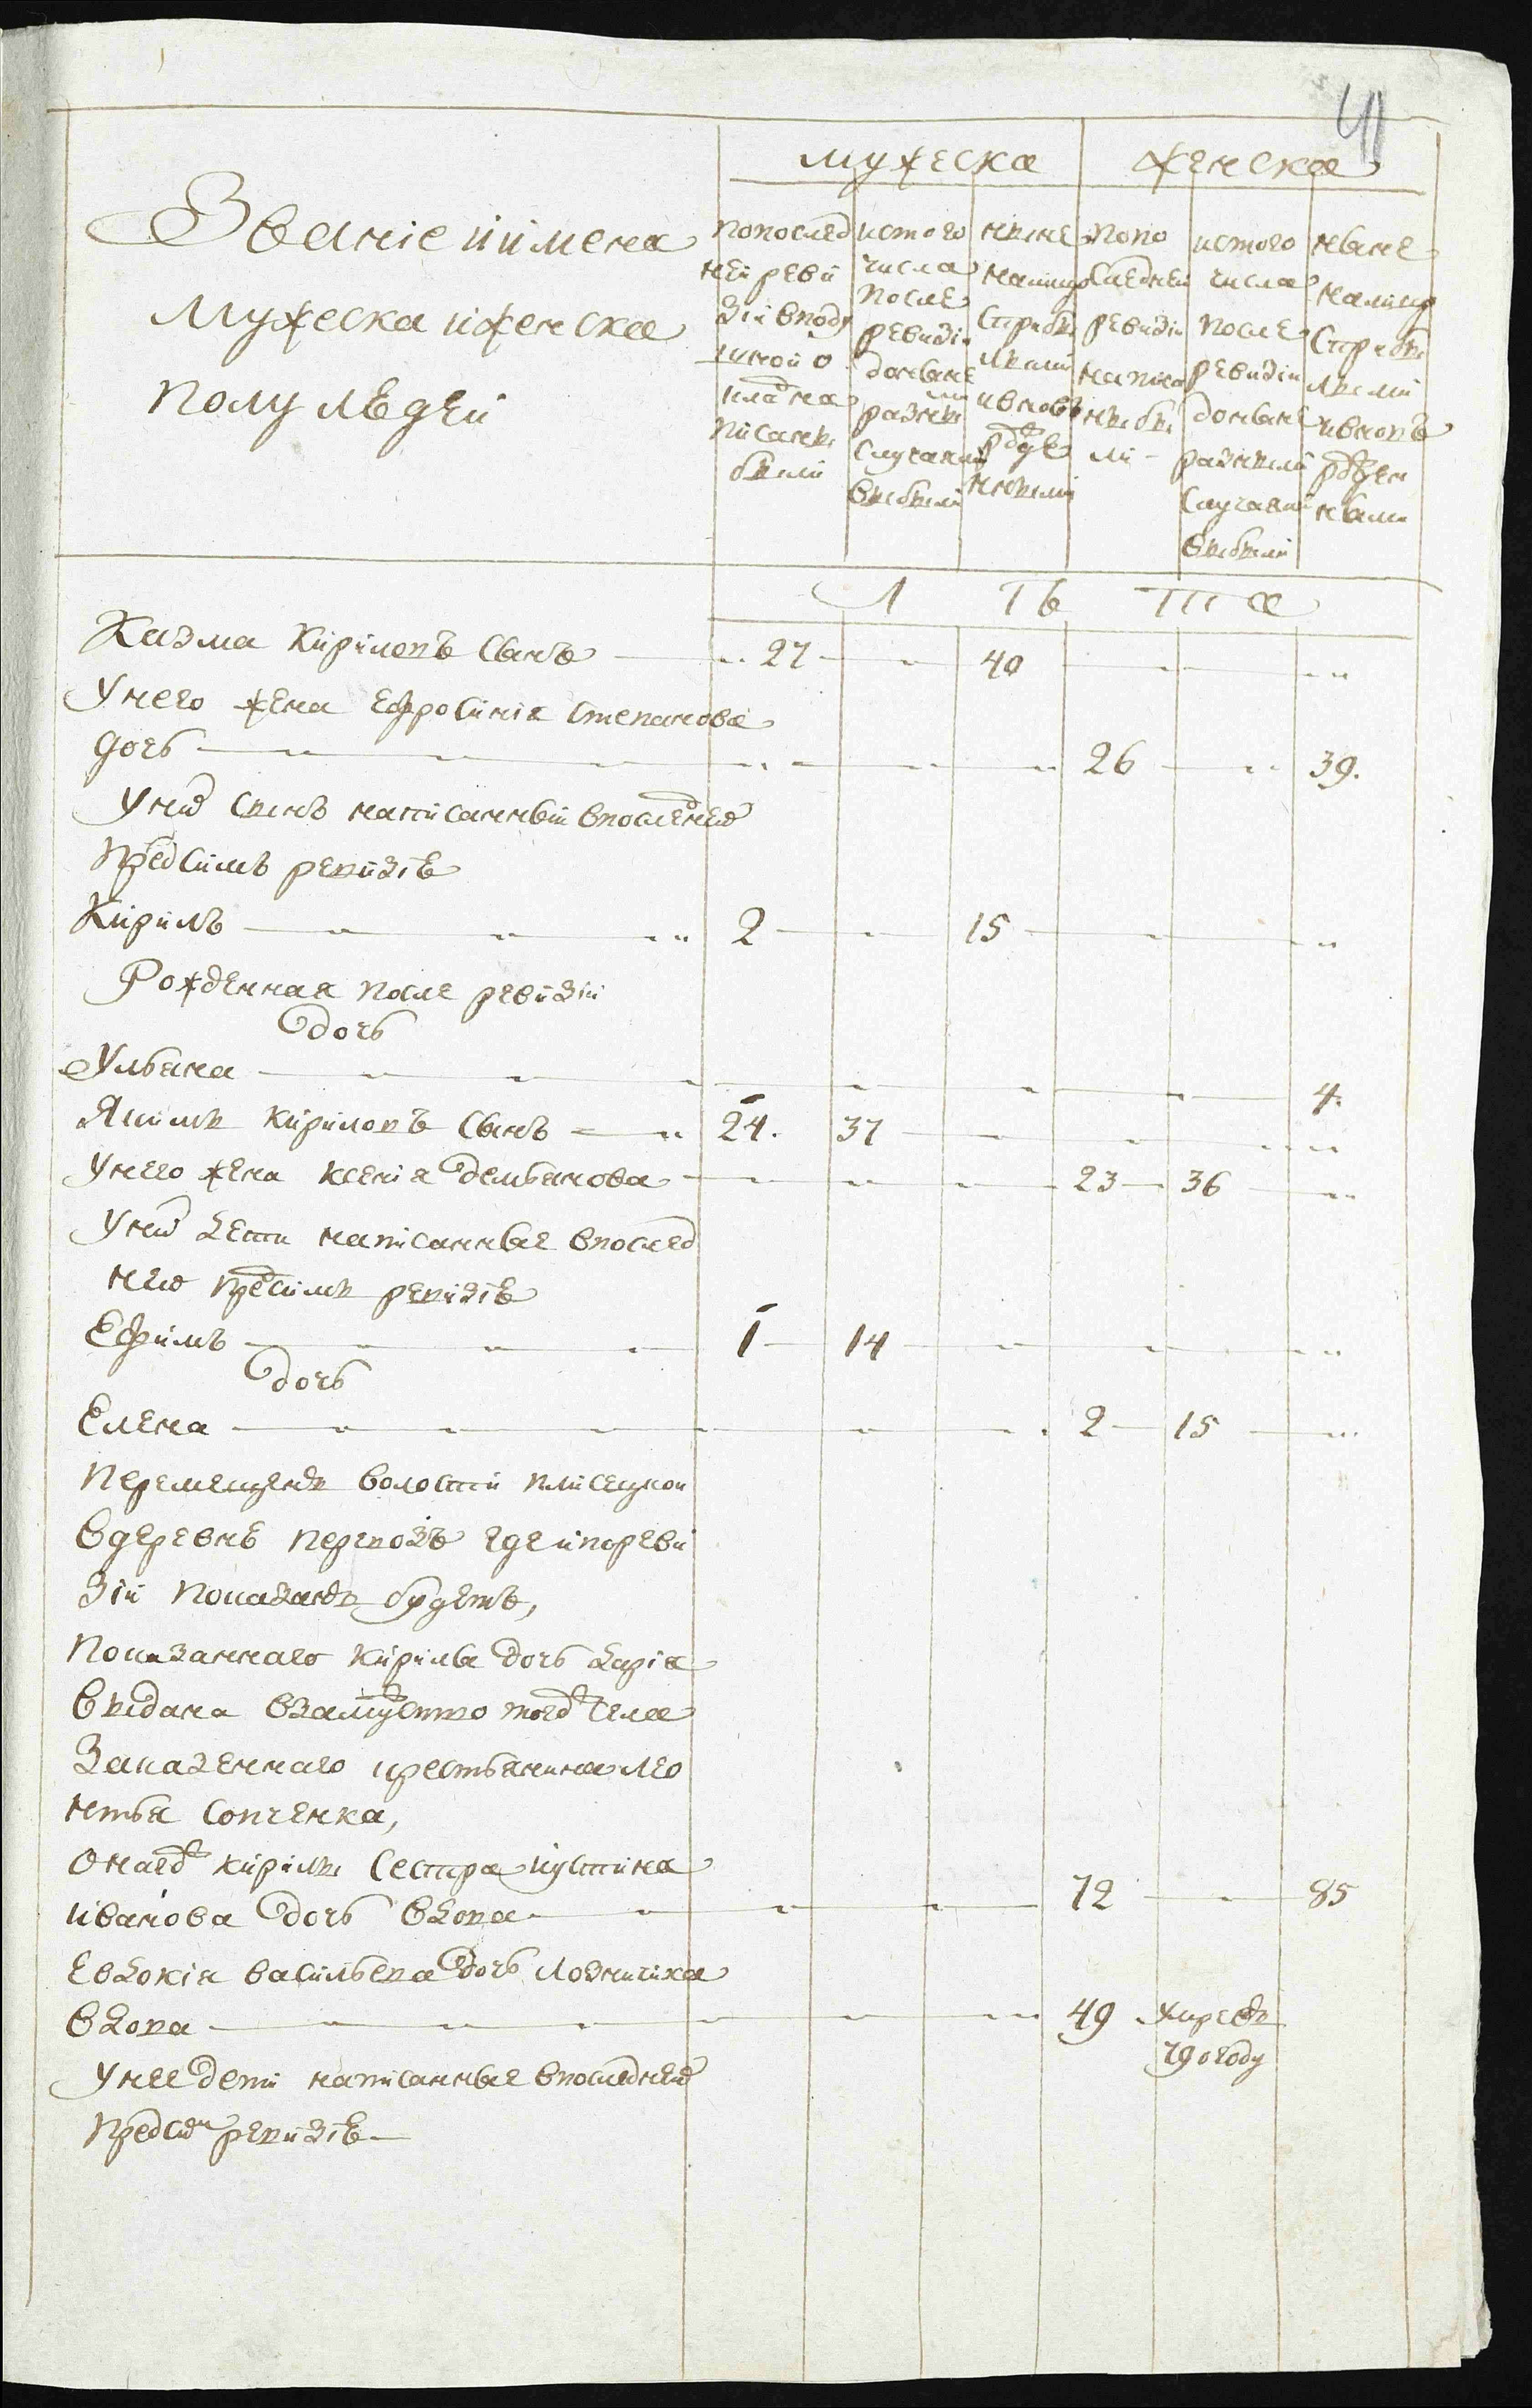 41
мужеска женска
Званіе и имена
мужеска и женска
полу людей
попослед
ней реви
зіи вподу
шной о
кладъ на
писаны
были
истого
числа
после
ревизіи
доныне
разными
случаями
выбыли
ныне
налицо
Сприбы
лыми
ивновь
рожде
нными
попо
Следней
ревизіи
написа
ны бы
ли
истого
числа
после
ревизіи
доныне
разными
Случаями
выбыли
ныне
налицо
Сприбы
лыми
ивновь
рожден
ными
Л ѣ т а
Казма Кириловъ Сынъ 27 40
Унего жена Ефросинія Степанова
дочь 26 39.
Уних Сынъ написанный впоследней
предсимъ ревизіи
Кирилъ 2 15
Рожденная после ревизіи
дочь
Ульяна 4.
Якимъ Кириловъ Сынъ 24. 37
Унего жена Ксенія демьянова 23 36
Уних дети написанные впослед
ней предсимъ ревизіи
Ефимъ 1 14
дочь
Елена 2 15
Перемещены волости плисецкои
вдеревнѣ перевозъ где ипореви
зіи показаны будетъ,
Показаннаго Кирила дочь дарія
выдана взамужство тогожъ села
заказеннаго крестьянина лео
нтья Сопченка,
Оногожъ Кирилы Сестра иустина
иванова дочь вдова 72 85
Евдокія васильева дочь Лозничиха
вдова 49 умре въ
790 году
Унее дети написанные впоследней
предсим ревизіи